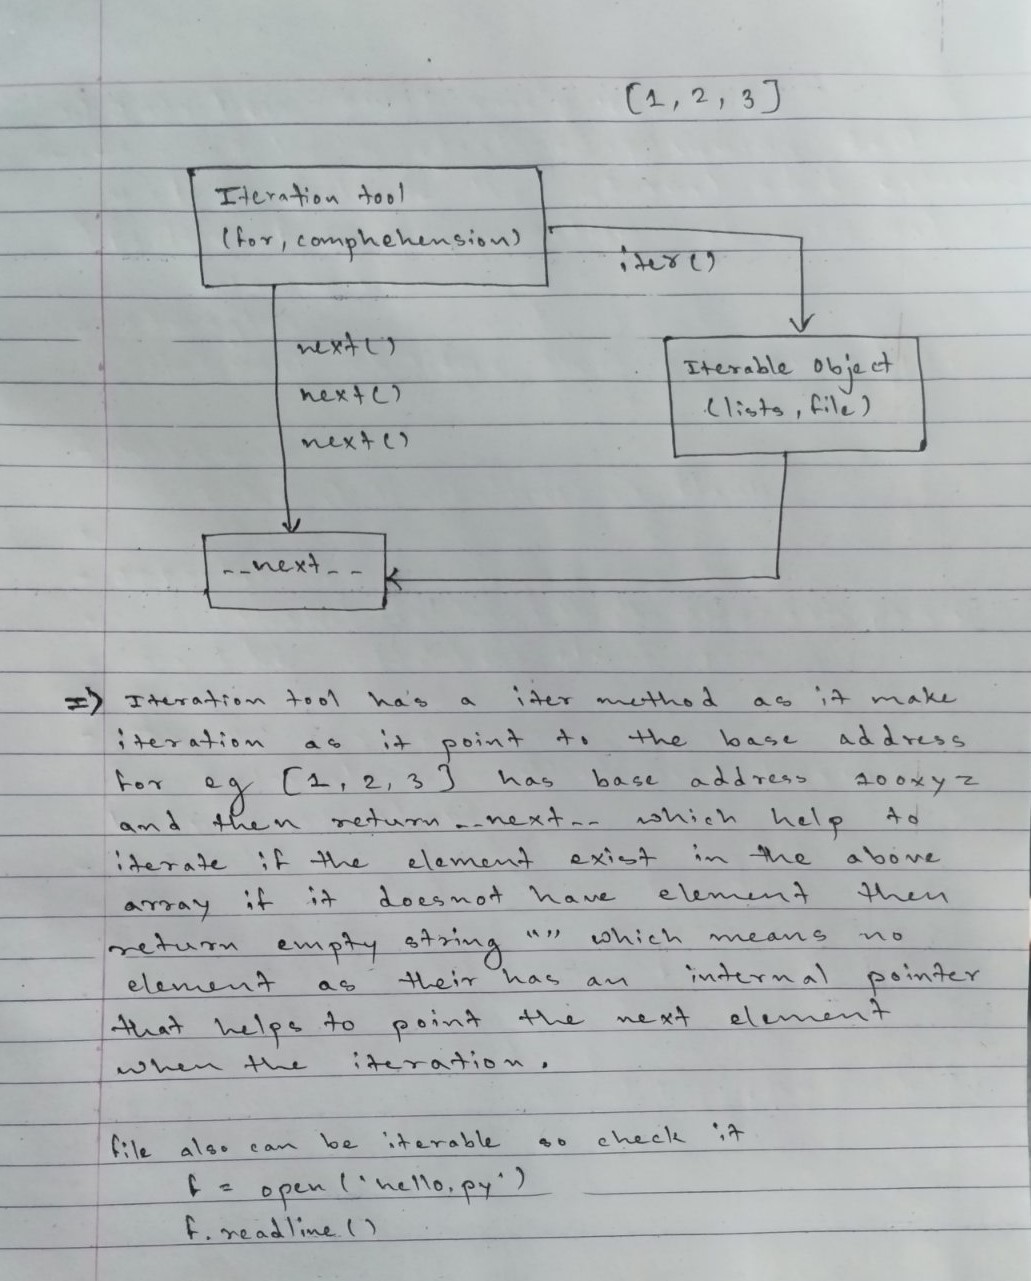 [1, 2, 3]
Iteration tool
(for, comphehension)
iter()
next()
next()
next()
Iterable Object
(lists, file)
__next__
=> Iteration tool has a iter method as it make
iteration as it point to the base address
for eg [1, 2, 3] has base address 100xyz
and then return __next__ which help to
iterate if the element exist in the above
array if it doesnot have element then
return empty string "" which means no
element as their has an internal pointer
that helps to point the next element
when the iteration.
file also can be iterable so check it
f = open('hello.py')
f.readline()